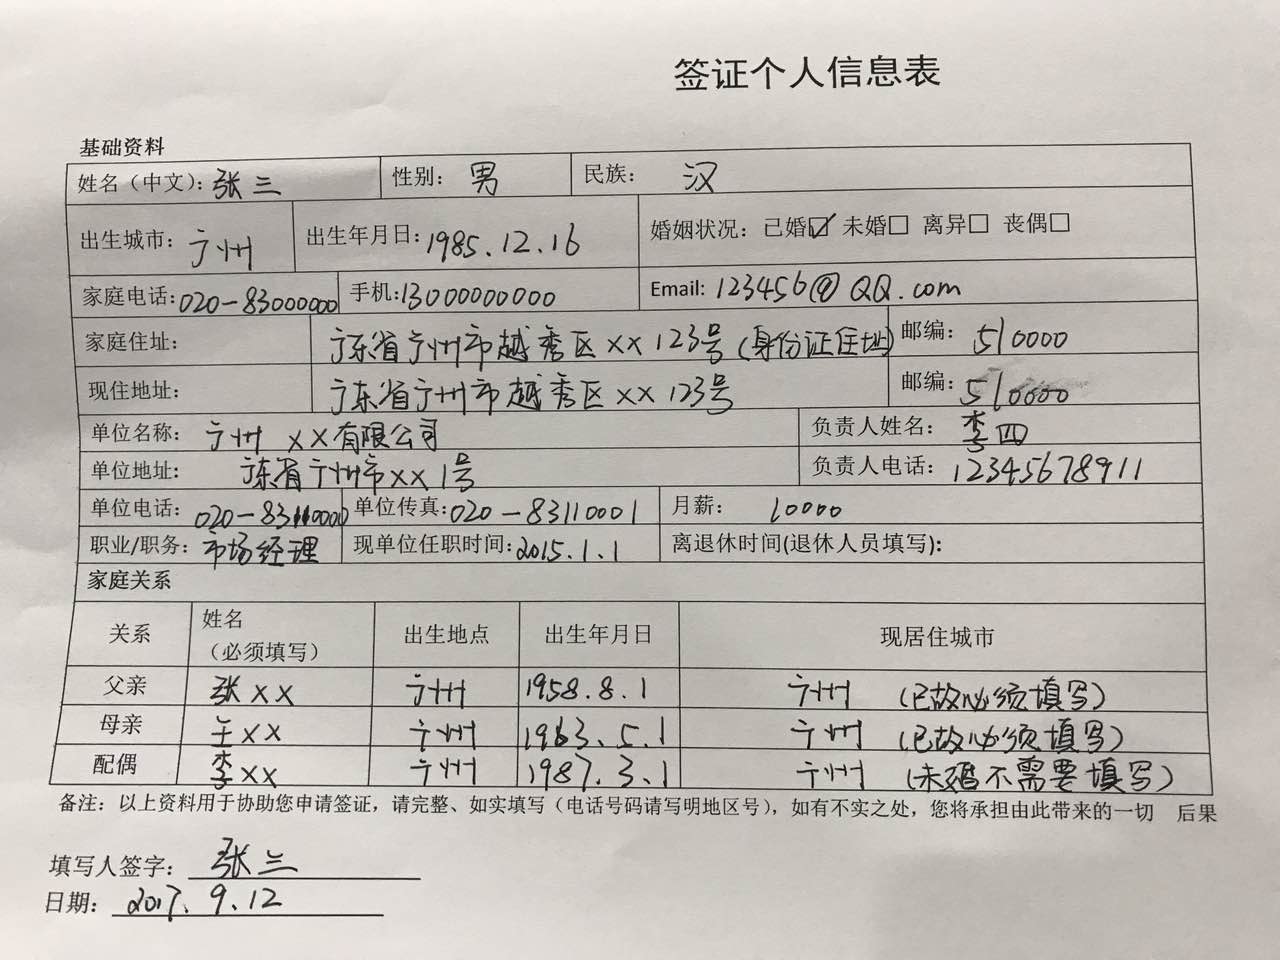 签证个人信息表
基础资料
姓名（中文）：张三 性别： 男 民族： 汉
出生城市： 广州 出生年月日：1985.12.16 婚姻状况： 已婚☑ 未婚☐ 离异☐ 丧偶☐
家庭电话：020-83000000 手机：13000000000 Email: 123456@QQ.com
家庭住址： 广东省广州市越秀区××123号（身份证住址） 邮编： 510000
现住地址： 广东省广州市越秀区××123号 邮编： 510000
单位名称： 广州××有限公司 负责人姓名： 李四
单位地址： 广东省广州市××1号 负责人电话：12345678911
单位电话：020-83110000 单位传真：020-83110001 月薪： 10000
职业/职务：市场经理 现单位任职时间：2015.1.1 离退休时间(退休人员填写)：
家庭关系
关系 姓名（必须填写） 出生地点 出生年月日 现居住城市
父亲 张×× 广州 1958.8.1 广州 （已故必须填写）
母亲 王×× 广州 1963.5.1 广州 （已故必须填写）
配偶 李×× 广州 1987.3.1 广州 （未婚不需要填写）
备注：以上资料用于协助您申请签证，请完整、如实填写（电话号码请写明地区号），如有不实之处，您将承担由此带来的一切 后果
填写人签字： 张三
日期： 2017.9.12